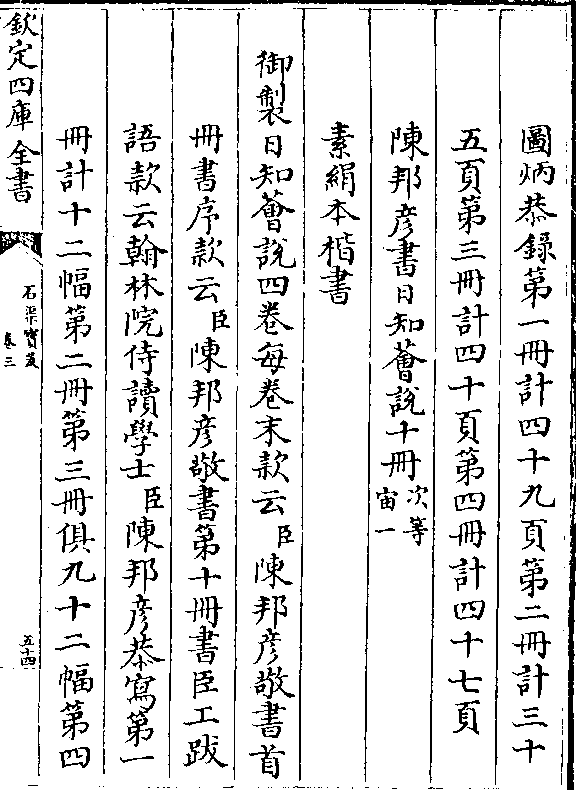 圖炳恭錄第一冊計四十九頁第二冊計三十
五頁第三冊計四十頁第四冊計四十七頁
陳邦彦書日知薈說十冊次等宙一
素絹本楷書
御製日知薈說四卷每卷末款云臣陳邦彦敬書首
冊書序款云臣陳邦彦敬書第十冊書臣工跋
語款云翰林院侍讀學士臣陳邦彦恭寫第一
冊計十二幅第二冊第三冊俱九十二幅第四
欽定四庫全書
石渠寶笈
卷三
五十四